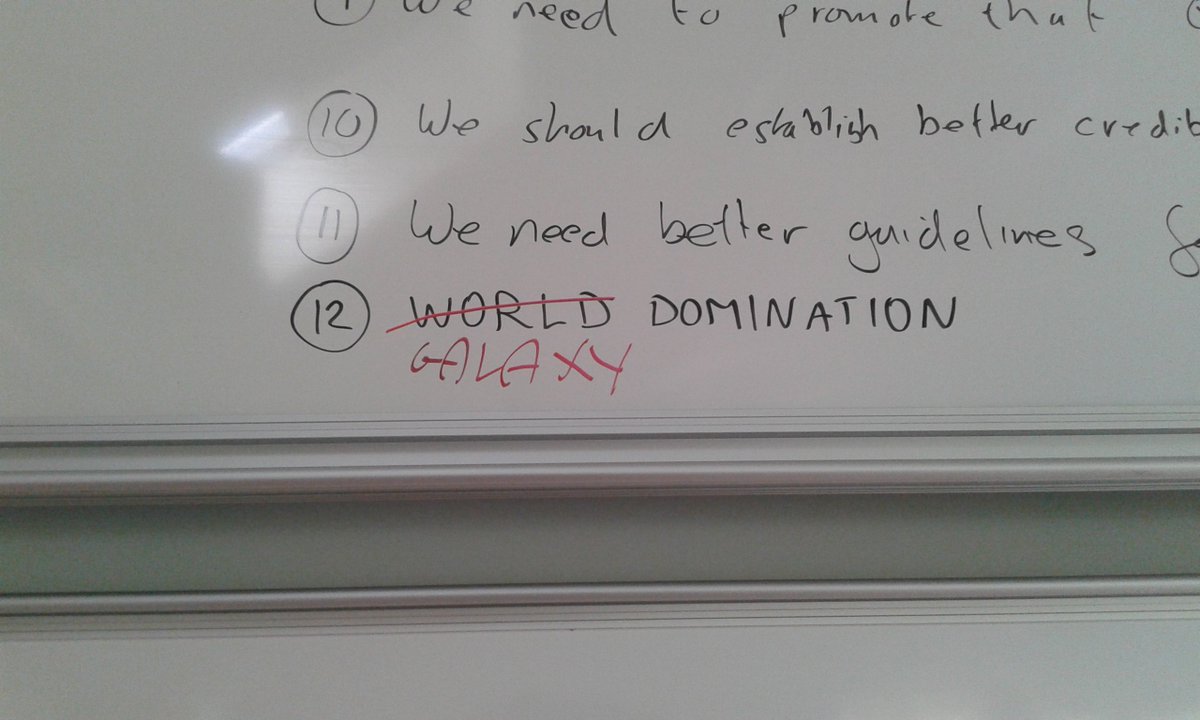 We need to promote that
10 We should establish better credib
11 We need better guidelines
12 WORLD DOMINATION
GALAXY